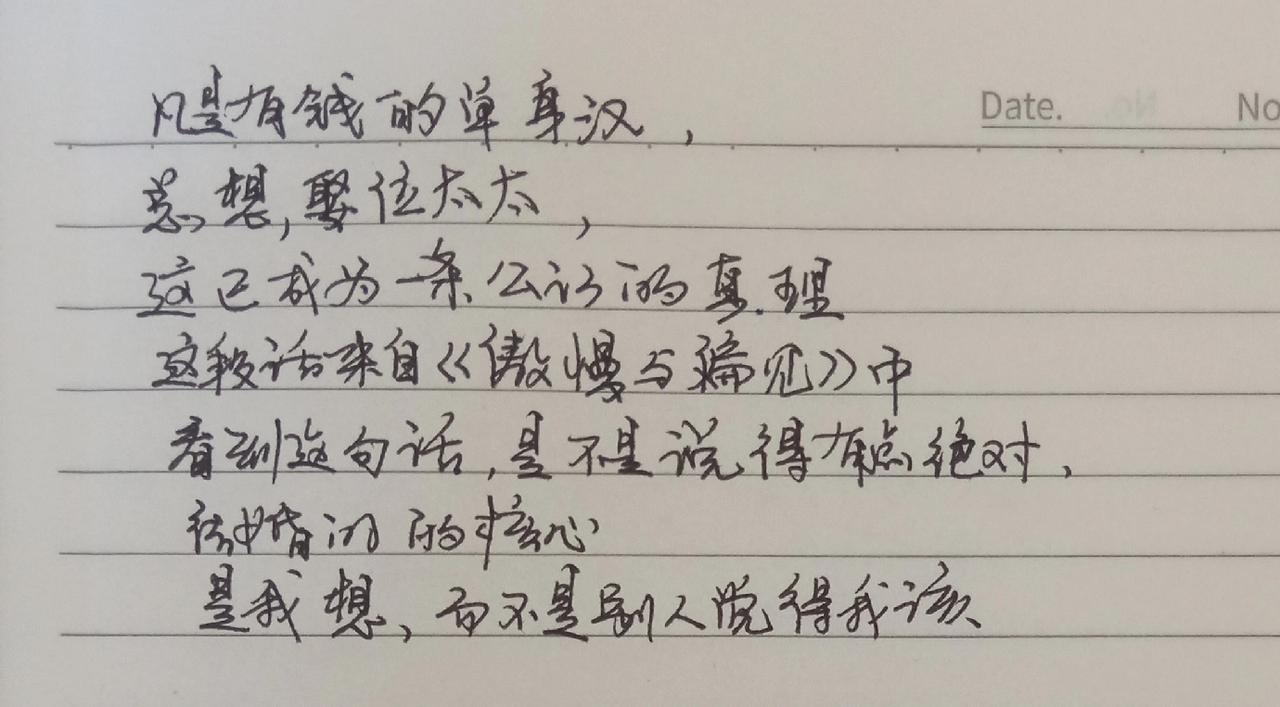 Date.
No
凡是有钱的单身汉，
总想，娶位太太，
这已成为一条公认的真理
这段话来自《傲慢与偏见》中
看到这句话，是不是说得有点绝对，
结婚的核心
是我想，而不是别人觉得我该